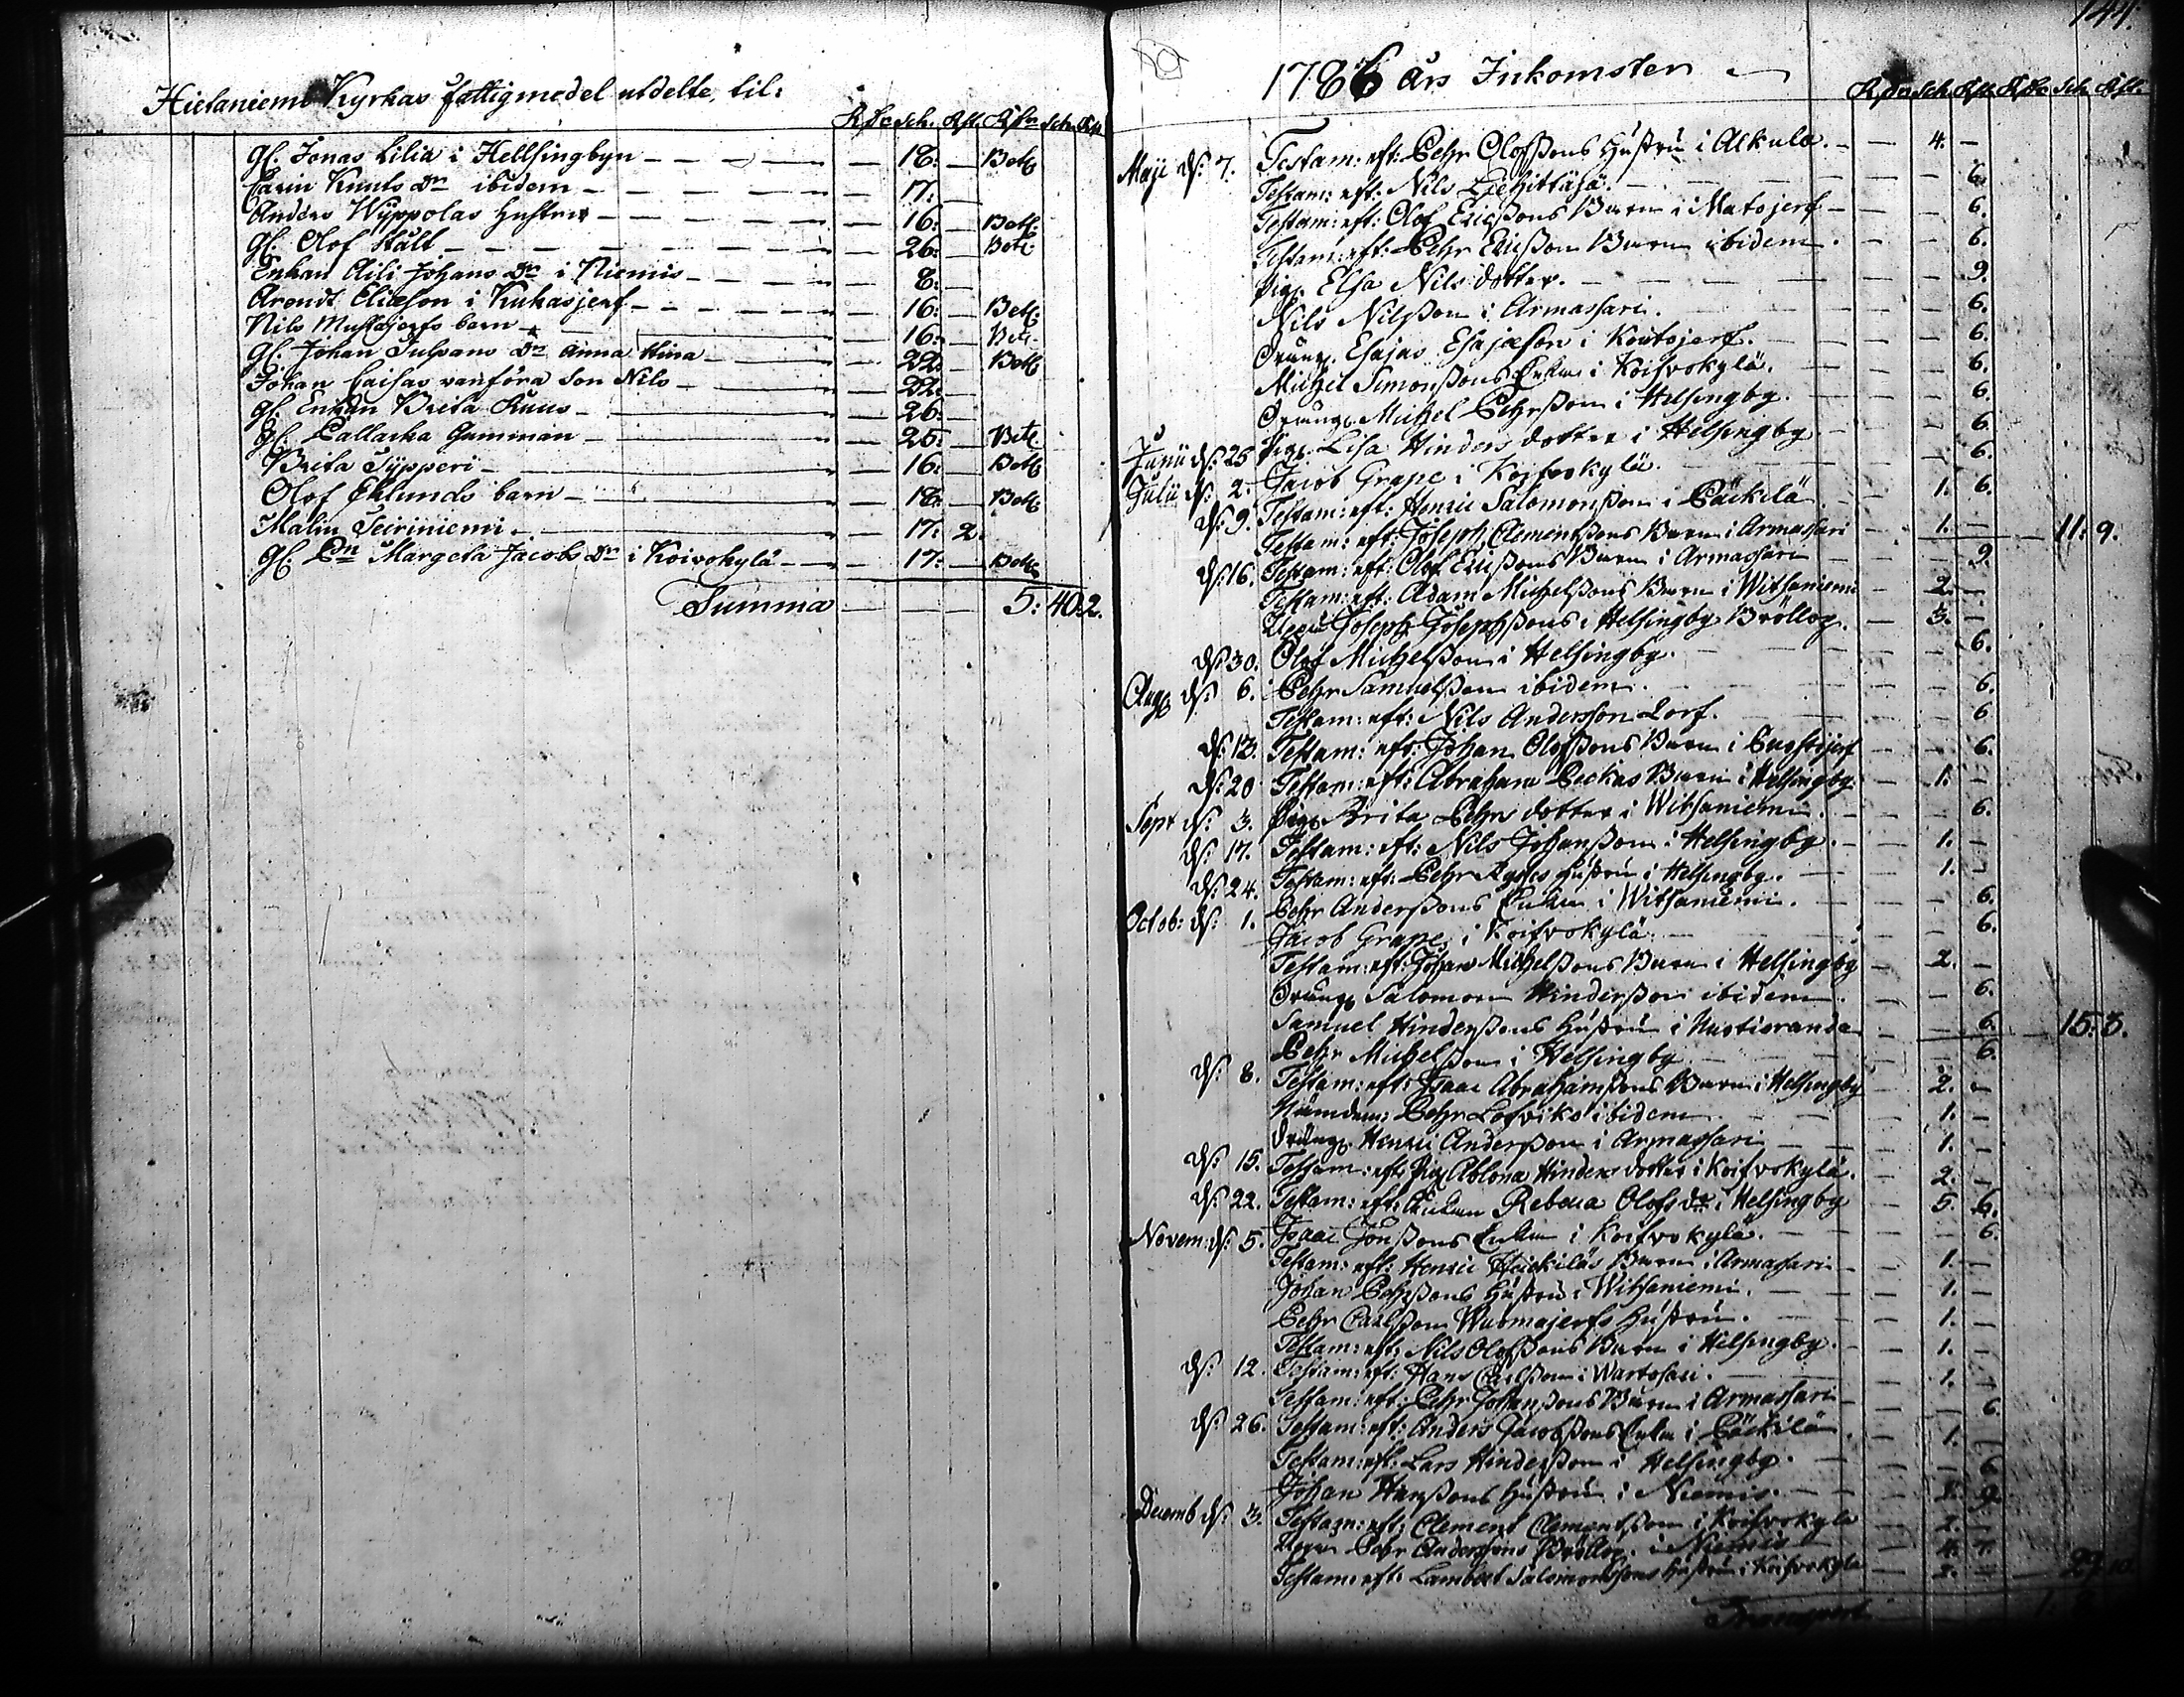 Hietaniemi Kyrkas fattigmedel utdelte, til:
R.dr sch. rst. R.dr sch. rst.
gl. Jonas Lilia i Hellsingbyn — 18: — Bet.
Carin Knuts Dr ibidem — 17: —
Anders Wyppolas hustru — 16: — Bet.
gl. Olof Stålt — 26: — Bet.
Enkan Aili Johans Dr i Niemis — 8: —
Arendt Elieson i Kukasjerf — 16: — Bet.
Nils Mustajerfs barn — 16: — Bet.
gl. Johan Dr Anna Stina — 22: — Bet.
Johan Caisas vanföra son Nils — 22: —
gl. Enkan Brita Kuus — 26: —
gl. Pallarka Gumman — 25: — Bet.
Brita Typperi — 16: — Bet.
Olof Eklunds barn — 18: — Bet.
Malin Teiriniemi — 17: 2.
gl. Pn Margeta Jacobs Dr i Koivokylä — 17: — Bet.
Summa — 5: 40: 2.
141.
1786 års Inkomster
R.dr sch. rst. R.dr sch. rst.
Maji d: 7. Testam: eft: Pehr Olofssons hustru i Alkula. — 4. —
Testam: eft: Nils — 6.
Testam: eft: Olof Ericssons Barn i Matojerf — 6.
Testam: eft: Pehr Ericsson Barn ibidem. — 6.
Pig. Elsa Nils dotter. — 9.
Nils Nilsson i Armassari. — 6.
Dräng. Esajas Esajæson i Koutojerf. — 6.
Michel Simonssons Enka i Koifvokylä. — 6.
Dräng. Michel Pehrsson i Helsingby. — 6.
Junii d: 25 Pig. Lisa Hinders dotter i Helsingby — 6.
Julii d: 2. Jacob Grape i Koifvokylä. — 6.
d: 9. Testam: eft: Henric Salomonsson i Päckilä — 1. 6.
Testam: eft: Joseph Clementssons Barn i Armassari — 1. — 11: 9.
d: 16. Testam: eft: Olof Ericssons Barn i Armassari — 9.
Testam: eft: Adam Michelssons Barn i Witsaniemi — 2. —
Joseph Josephssons i Helsingby Bröllop. — 3. —
d: 30. Olof Michelsson i Helsingby. — 6.
Aug. d: 6. Pehr Samuelsson ibidem. — 6.
Testam: eft: Nils Andersson Lorf. — 6.
d: 13. Testam: eft: Johan Olofssons Barn i — 6.
d: 20 Testam: eft: Abraham Peckas Barn i Helsingby — 1. —
Sept d: 3. Pig. Brita Pehrs dotter i Witsaniemi. — 6.
d: 17. Testam: eft: Nils Johansson i Helsingby. — 1. —
d: 24. Testam: eft: Pehr hustru i Helsingby. — 1. —
Pehr Anderssons Enka i Witsaniemi. — 6.
Octob: d: 1. Jacob Grape i Koifvokylä. — 6.
Testam: eft: Johan Michelssons Barn i Helsingby — 2. —
Dräng. Salomon Hindersson ibidem. — 6.
Samuel Hinderssons hustru i — 6. — 15: 3.
Pehr Michelsson i Helsingby — 6.
d: 8. Testam: eft: Isaac Abrahamssons Barn i Helsingby — 2. —
Nämdem: Pehr Lofviks ibidem — 1. —
Dräng. Henric Andersson i Armassari — 1. —
d: 15. Testam: eft: Pig. Ablona Hinders dotter i Koifvokylä. — 2. —
d: 22. Testam: eft: Enkan Rebeca Olofs dr i Helsingby — 5. 6.
Novem: d: 5. Isaac Jönssons Enka i Koifvokylä. — 6.
Testam: eft: Henric Heickiläs Barn i Armassari — 1. —
Johan Pehrssons hustru i Witsaniemi. — 1. —
Pehr Carlsson Warmajerfs hustru. — 1. —
Testam: eft: Nils Olofssons Barn i Helsingby. — 1. —
d: 12. Testam: eft: Hans i Wartosari. — 1. —
Testam: eft: Pehr Johanssons Barn i Armassari — 6.
d: 26. Testam: eft: Anders Jacobssons Enka i Päckilä. — 1. —
Testam: eft: Lars Hindersson i Helsingby. — 6.
Johan Hanssons hustru i Niemis. — 9.
Decemb d: 3. Testam: eft: Clement Clementsson i Koifvokylä — 2. —
Pehr Anderssons Bröllop i Niemis — 4.
Testam: eft: Lambert Salomonssons hustru i Koifvokylä
Transport